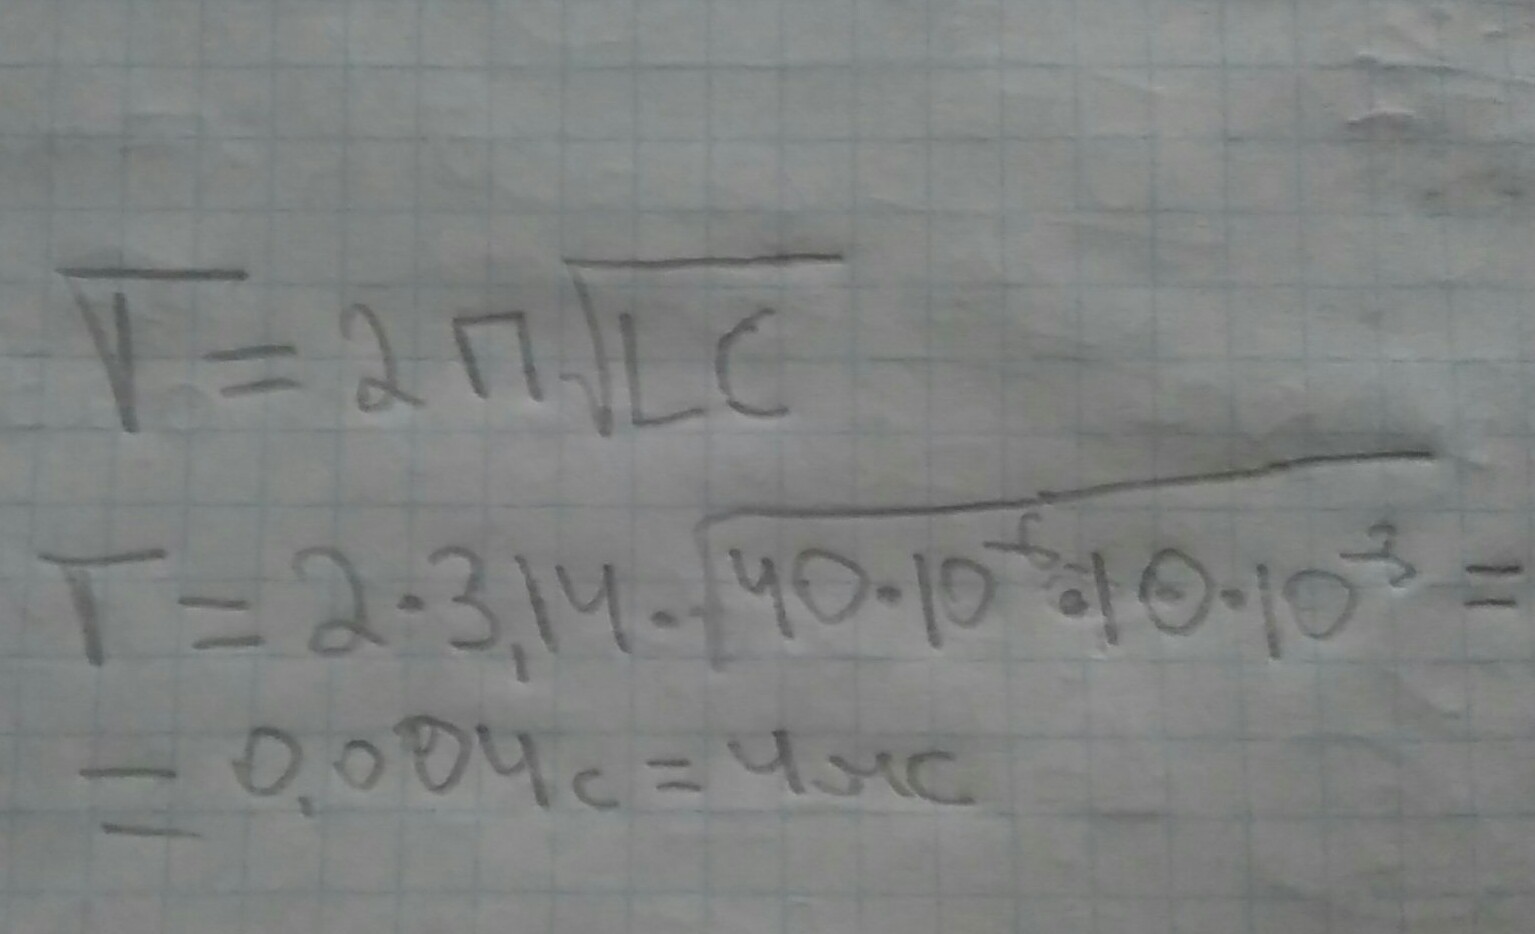 T = 2π√LC
T = 2·3,14·√40·10⁻⁶·10·10⁻³ =
= 0,004с = 4мс